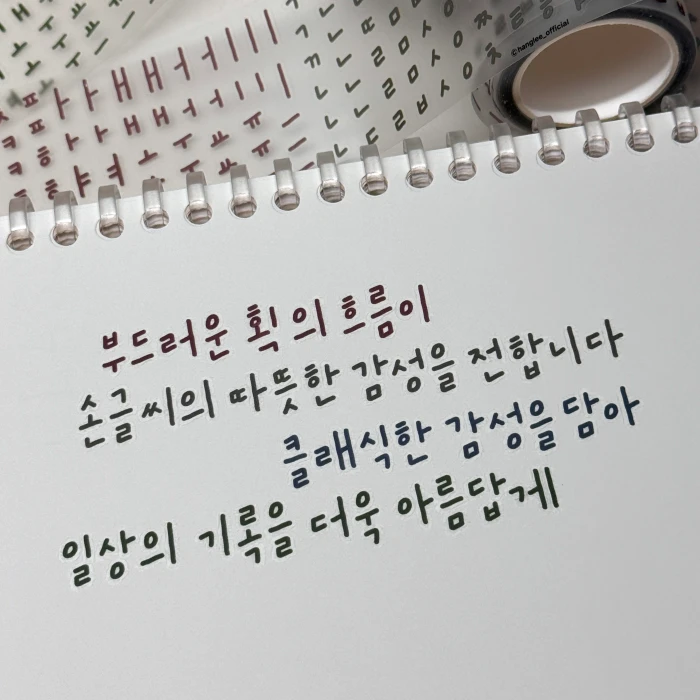 ©hanglee_official
부드러운 획의 흐름이
손글씨의 따뜻한 감성을 전합니다
클래식한 감성을 담아
일상의 기록을 더욱 아름답게